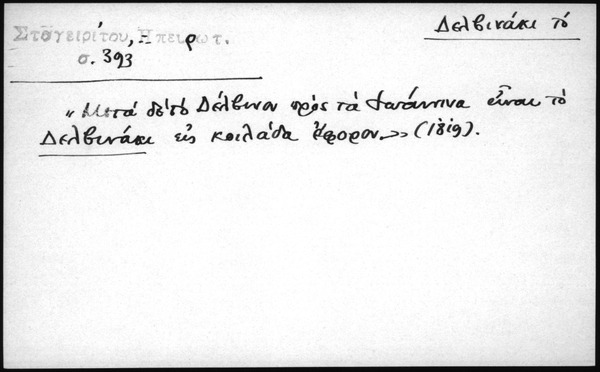 Δελβινάκι τό
Σταγειρίτου, Ἠπειρωτ.
σ. 393
"Μετά δέ τό Δέλβινον πρός τά Ἰωάννινα εἶναι τό
Δελβινάκι εἰς κοιλάδα εὔφορον.» (1819).